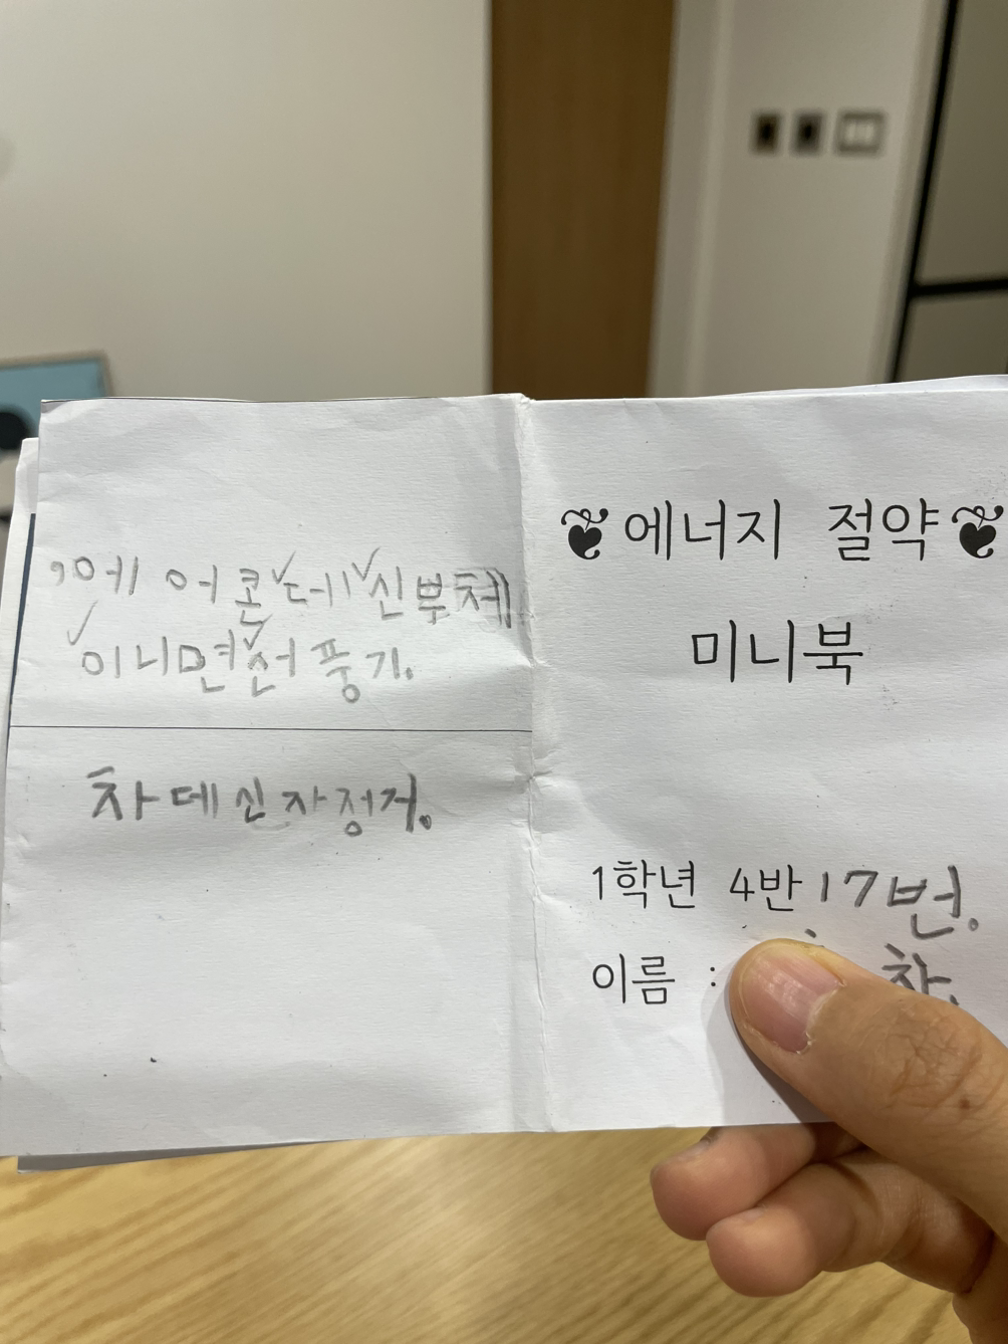 에어콘데신부체
이니면선풍기.
차데신자정거.
❦에너지 절약❦
미니북
1학년 4반 17번.
이름 :